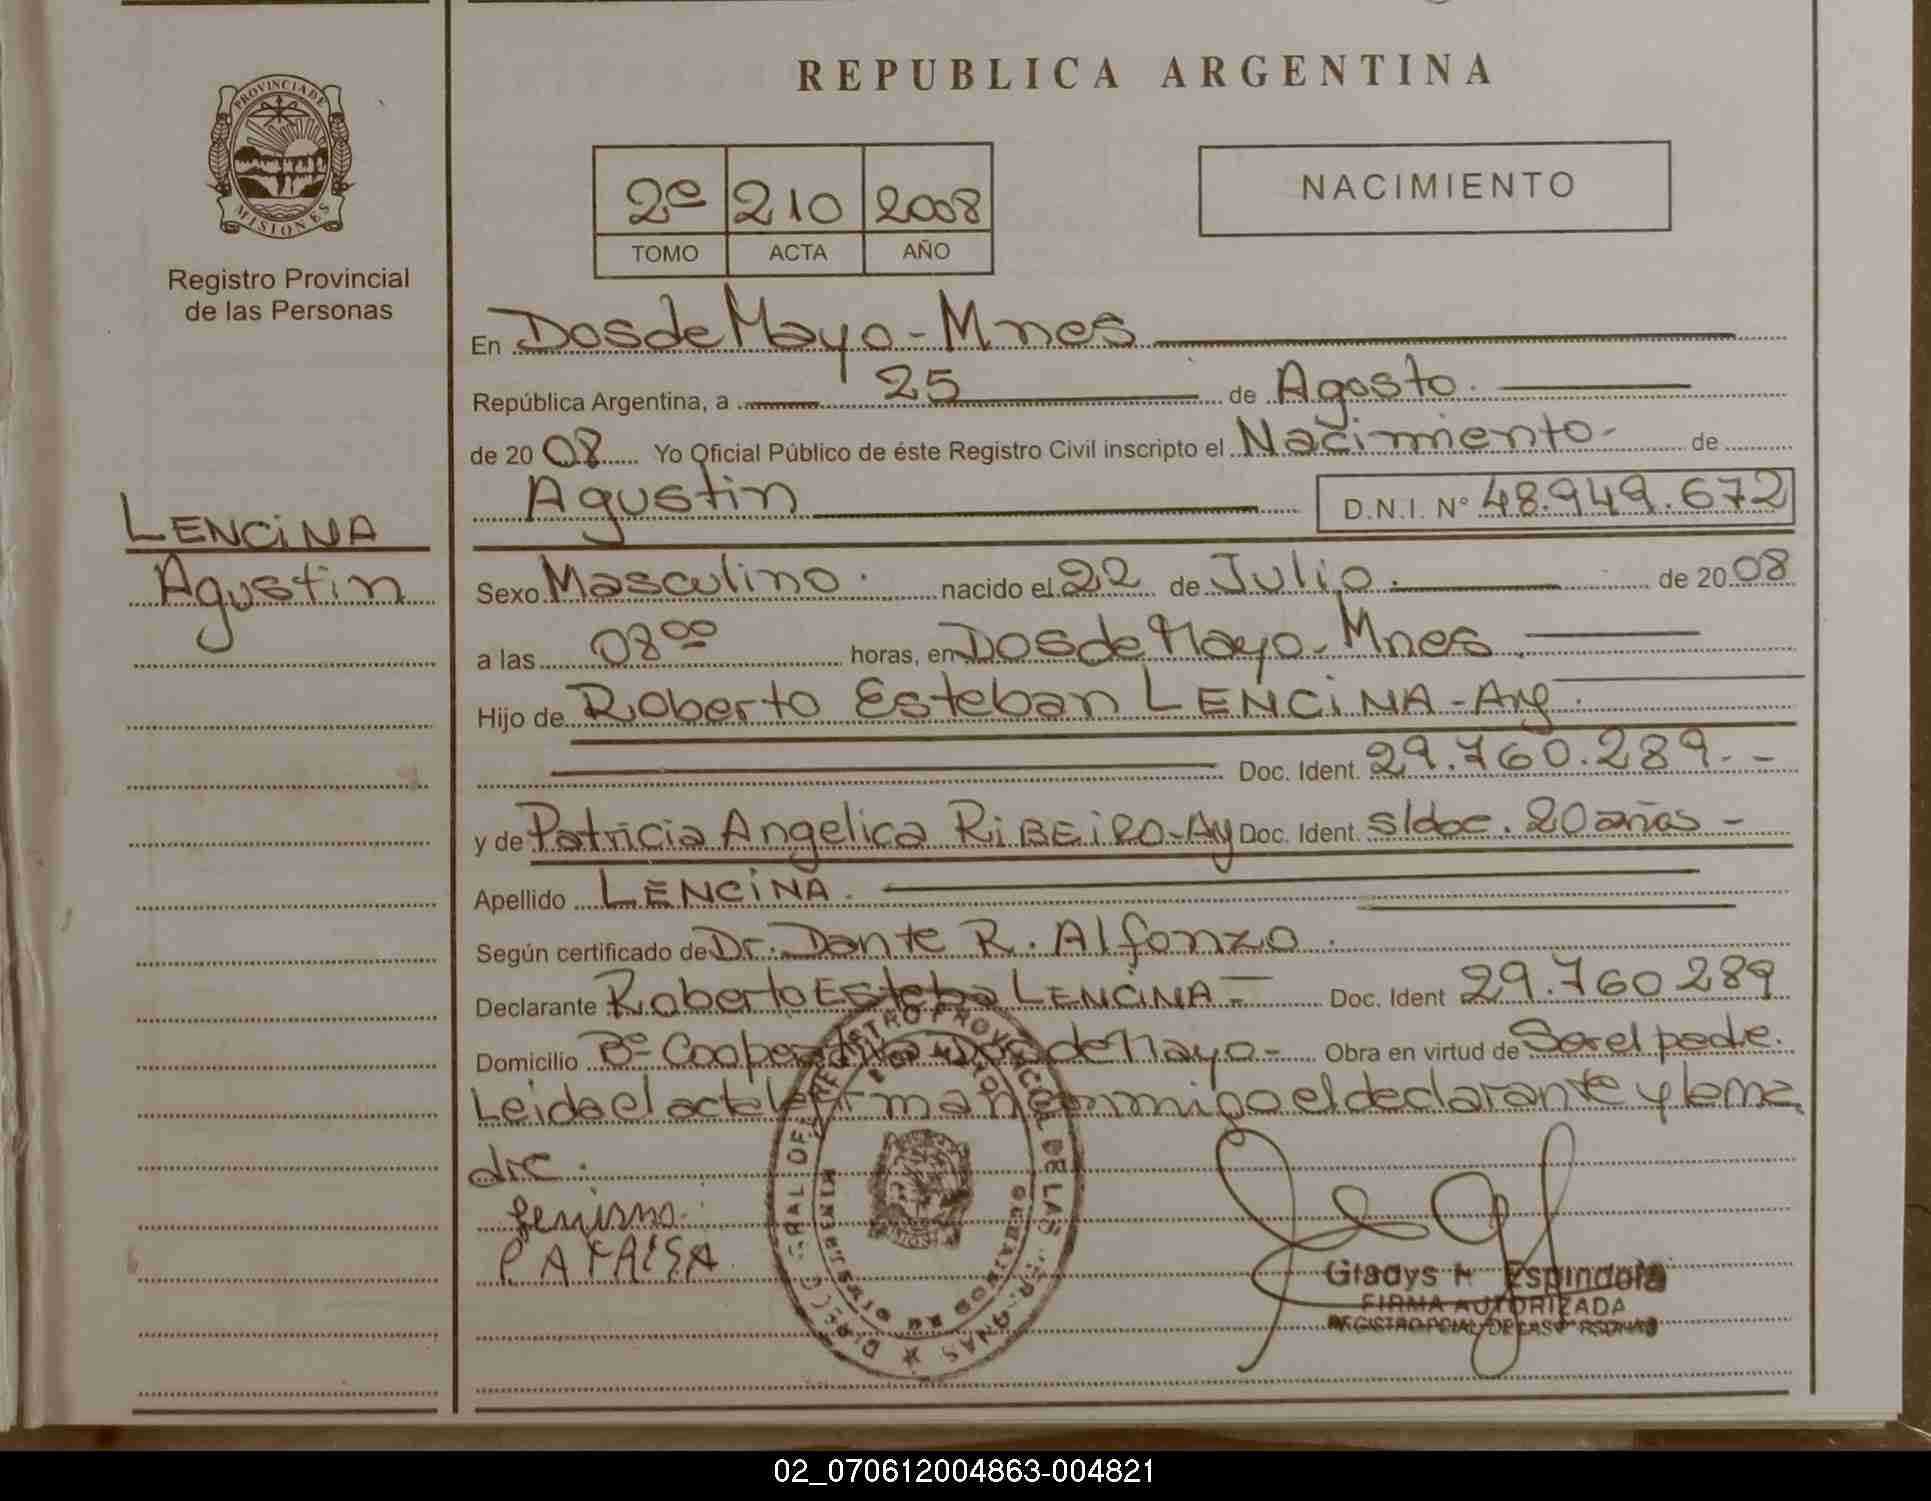 REPUBLICA ARGENTINA
PROVINCIA DE
MISIONES
Registro Provincial
de las Personas
2º 210 2008
TOMO ACTA AÑO
NACIMIENTO
En Dos de Mayo - Mnes
República Argentina, a 25 de Agosto.
de 2008 Yo Oficial Público de éste Registro Civil inscripto el Nacimiento - de
Agustin D.N.I. Nº 48.949.672
LENCINA
Agustin
Sexo Masculino. nacido el 22 de Julio. de 2008
a las 08 00 horas, en Dos de Mayo - Mnes.
Hijo de Roberto Esteban LENCINA - Arg.
y Doc. Ident. 29.760.289.-
y de Patricia Angelica RIBEIRO - Ag Doc. Ident. s/doc. 20 años -
Apellido LENCINA.
Según certificado de Dr. Dante R. Alfonzo.
Declarante Roberto Esteba LENCINA - Doc. Ident 29.760289
Domicilio Bº Cooperativa Dos de Mayo - Obra en virtud de Ser el padre.
Leida el acta la firman conmigo el declarante y la ma
dre.
PATRISA
Gladys Espindola
FIRMA AUTORIZADA
REGISTRO PCIAL DE LAS PERSONAS
02_070612004863-004821